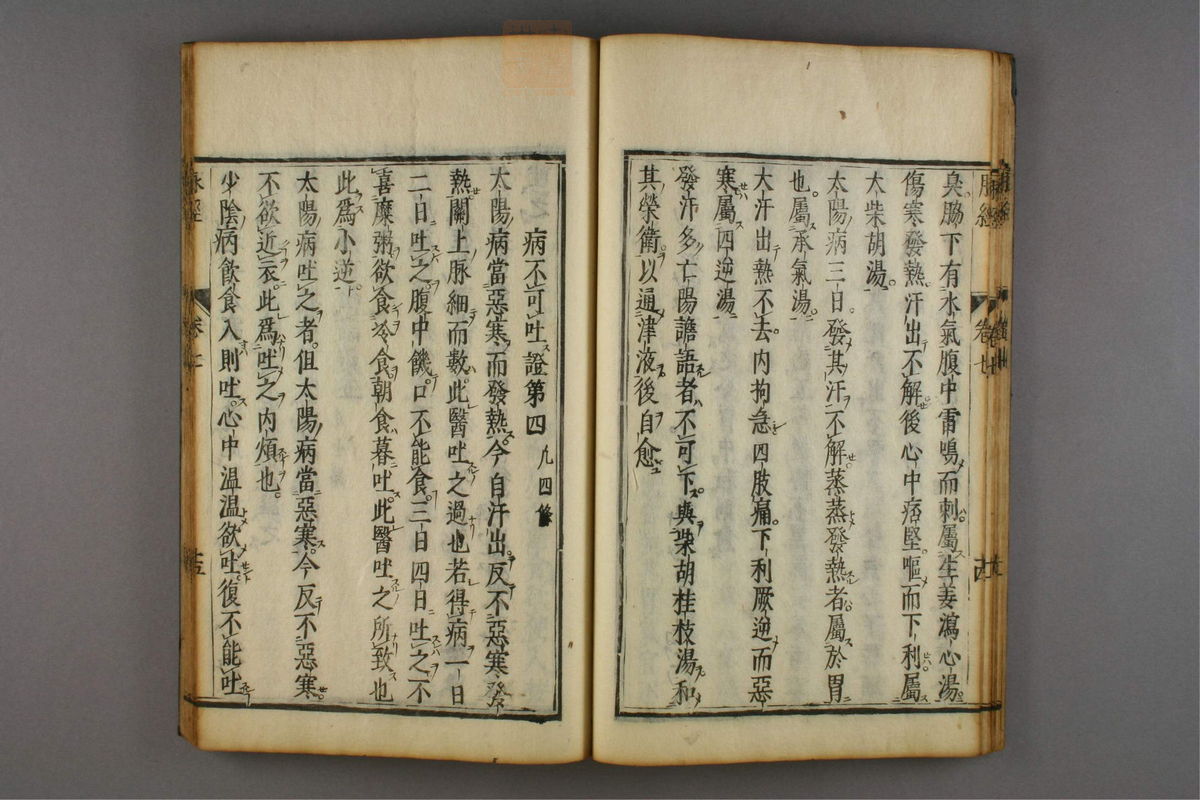 脉經 卷七 十四
臭脇下有水氣腹中雷鳴而利屬生姜瀉心湯
傷寒發熱汗出不解後心中痞堅嘔而下利屬
大柴胡湯
太陽病三日發其汗不解蒸蒸發熱者屬於胃
也屬承氣湯
大汗出熱不去内拘急四肢痛下利厥逆而惡
寒屬四逆湯
發汗多亡陽譫語者不可下與柴胡桂枝湯和
其榮衛以通津液後自愈
病不可吐證第四 凡四條
太陽病當惡寒而發熱今自汗出反不惡寒發
熱關上脉細而數此醫吐之過也若得病一日
二日吐之腹中饑口不能食三日四日吐之不
喜糜粥欲食冷食朝食暮吐此醫吐之所致也
此爲小逆
太陽病吐之者但太陽病當惡寒今反不惡寒
不欲近衣此爲吐之内煩也
少陰病飲食入則吐心中温温欲吐復不能吐